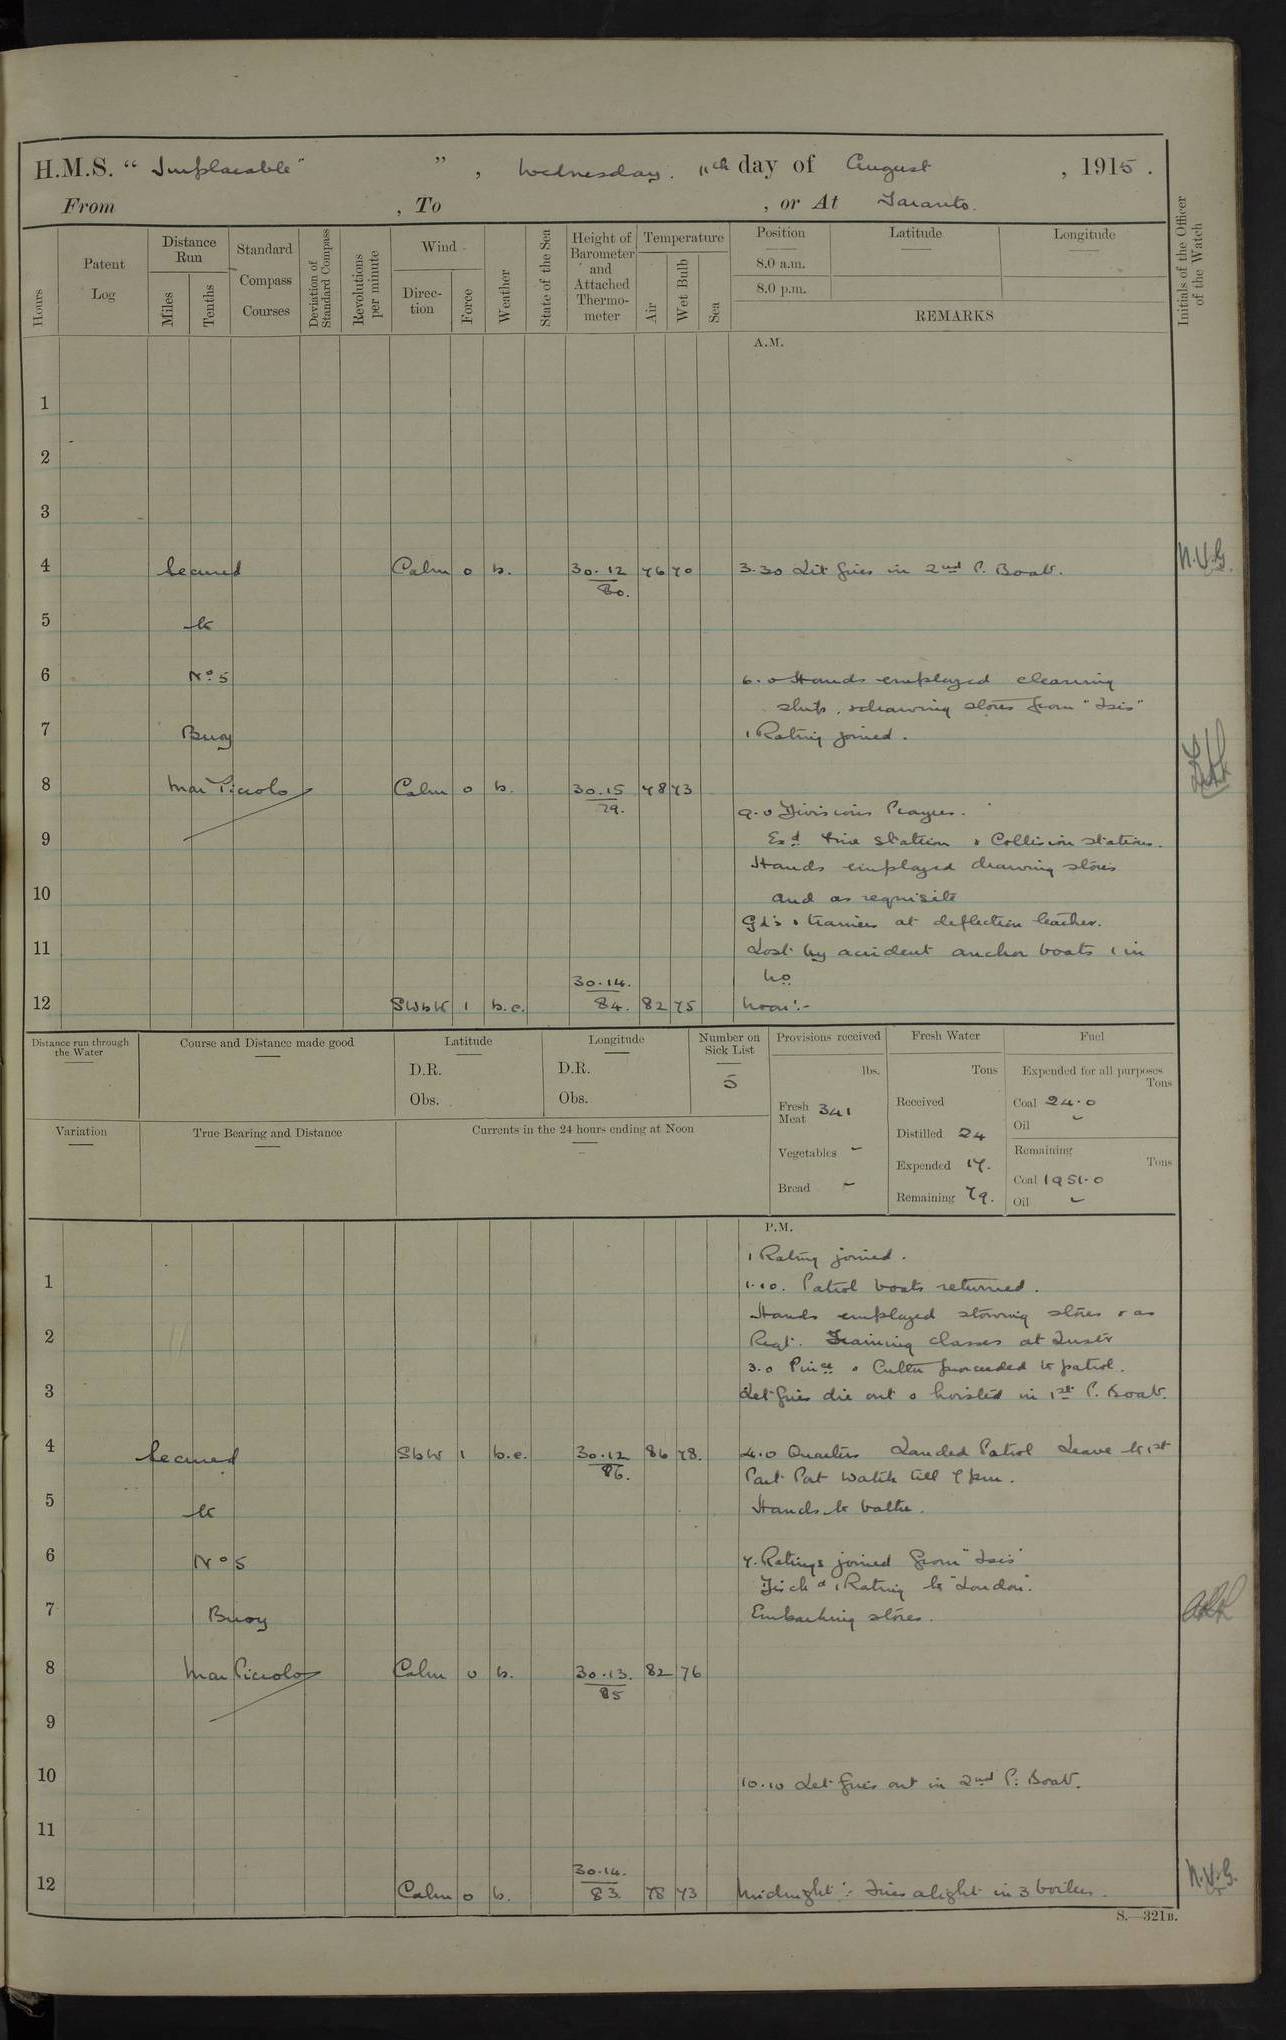 H.M.S. "Implacable" ", Wednesday. 11th day of August, 1915.
From , To , or At Taranto.
Hours
Patent Log
Distance Run
Miles
Tenths
Standard Compass Courses
Deviation of Standard Compass
Revolutions per minute
Wind
Direction
Force
Weather
State of the Sea
Height of Barometer and Attached Thermometer
Temperature
Air
Wet Bulb
Sea
Position
8.0 a.m.
8.0 p.m.
Latitude
Longitude
REMARKS
Initials of the Officer of the Watch
A.M.
1
2
3
4 Secured Calm 0 b. 30.12 80. 76 70 3.30 Lit fires in 2nd P. Boat. N.V.G.
5 to
6 No 5 6.0 Hands employed cleaning
ship, & drawing stores from "Isis"
7 Buoy 1 Rating joined.
8 Mar Piccolo Calm 0 b. 30.15 79. 78 73
9.0 Divisions Prayers.
9 Exd Fire Station & Collision stations.
Hands employed drawing stores
10 and as requisite
& trainers at deflection teacher.
11 Lost by accident anchor boats 1 in
No
12 SWbW 1 b.c. 30.14. 84. 82 75 Noon:-
Distance run through the Water
Course and Distance made good
Latitude
D.R.
Obs.
Longitude
D.R.
Obs.
Number on Sick List
5
Provisions received
lbs.
Fresh Meat 341
Vegetables -
Bread -
Fresh Water
Tons
Received
Distilled 24
Expended 17.
Remaining 79.
Fuel
Expended for all purposes
Tons
Coal 24.0
Oil -
Remaining
Tons
Coal 1951.0
Oil -
Variation
True Bearing and Distance
Currents in the 24 hours ending at Noon
P.M.
1 Rating joined.
1 1.10. Patrol boats returned.
Hands employed stowing stores & as
2 Reqt. Training classes at Instr
3.0 Pince & Cutter proceeded to patrol.
3 Let fires die out & hoisted in 1st P. Boat.
4 Secured SbW 1 b.c. 30.12 86. 86 78. 4.0 Quarters Landed Patrol Leave to 1st
Part Port Watch till 7 pm.
5 to Hands to bathe.
6 No 5 7. Ratings joined from "Isis"
Disch d 1 Rating to "London".
7 Buoy Embarking stores.
8 Mar Piccolo Calm 0 b. 30.13. 85 82 76
9
10 10.10 Let fires out in 2nd P. Boat.
11
12 Calm 0 b. 30.14. 83 78 73 Midnight:- Fires alight in 3 boilers. N.V.G.
S.—321B.